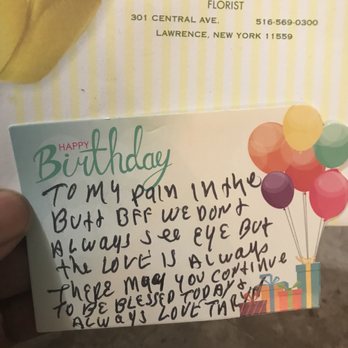 FLORIST
301 CENTRAL AVE. 516-569-0300
LAWRENCE, NEW YORK 11559
HAPPY
Birthday
TO MY PAIN IN the
Butt BFF WE DONT
Always see EYE But
the LOVE IS Always
There MAY YOU CONTINUE
TO BE BLESSED TODAY &
ALWAYS LOVE